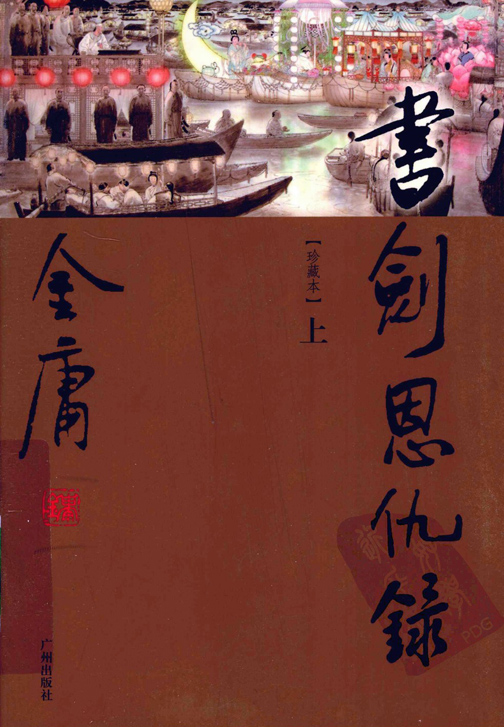 書劍恩仇錄
【珍藏本】
上
金庸
广州出版社
PDG